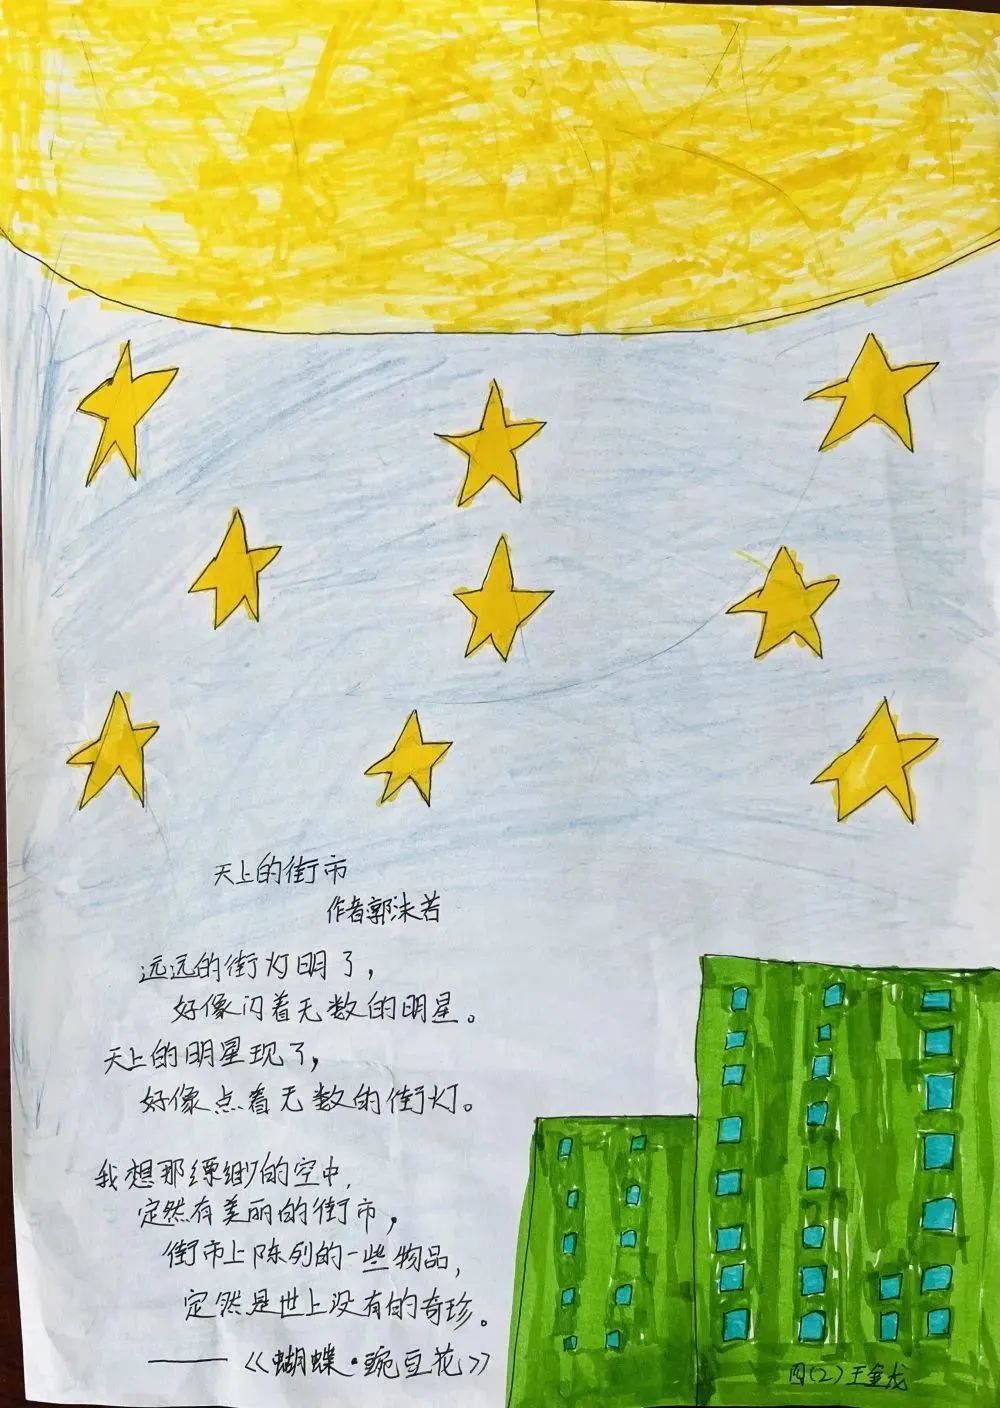 天上的街市
作者郭沫若
远远的街灯明了，
好像闪着无数的明星。
天上的明星现了，
好像点着无数的街灯。
我想那缥缈的空中，
定然有美丽的街市，
街市上陈列的一些物品，
定然是世上没有的奇珍。
——《蝴蝶·豌豆花》
四(2)王金龙